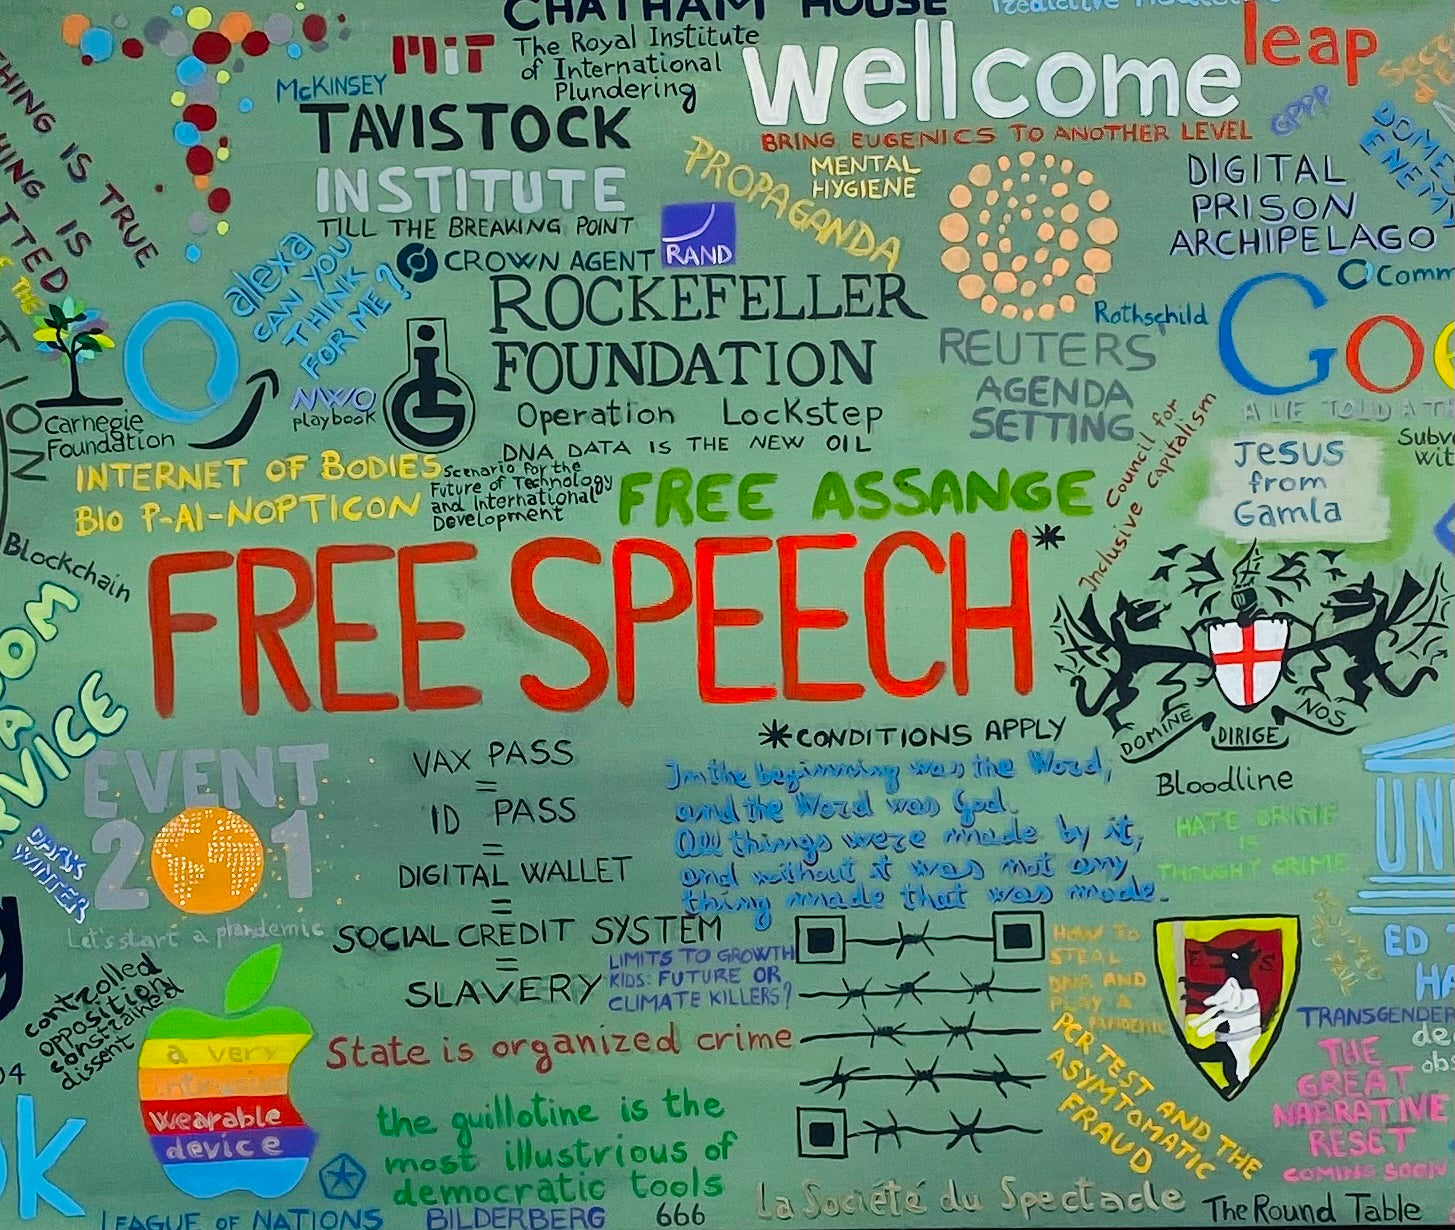 CHATHAM HOUSE
The Royal Institute
of International
Plundering
MiT
McKINSEY
TAVISTOCK
INSTITUTE
TILL THE BREAKING POINT
wellcome
BRING EUGENICS TO ANOTHER LEVEL
leap
GPPP
MENTAL
HYGIENE
PROPAGANDA
DIGITAL
PRISON
ARCHIPELAGO
THING IS TRUE
HING IS
TTED
alexa
CAN YOU
THINK
FOR ME?
CROWN AGENT
RAND
ROCKEFELLER
FOUNDATION
Operation Lockstep
DNA DATA IS THE NEW OIL
Rothschild
REUTERS
AGENDA
SETTING
Comm
Goo
A LIE TOLD A T
Carnegie
Foundation
NWO
playbook
iG
INTERNET OF BODIES
BIO P-AI-NOPTICON
Scenario for the
Future of Technology
and International
Development
FREE ASSANGE
Council for
Inclusive capitalism
Jesus
from
Gamla
Subve
wit
Blockchain
FREE SPEECH*
*CONDITIONS APPLY
DOMINE DIRIGE NOS
Bloodline
EVENT
201
Let's start a plandemic
DARK
WINTER
VAX PASS
=
ID PASS
=
DIGITAL WALLET
=
SOCIAL CREDIT SYSTEM
=
SLAVERY
In the beginning was the Word,
and the Word was God.
All things were made by it,
and without it was not any
thing made that was made.
HATE CRIME
IS
THOUGHT CRIME
UN
LIMITS TO GROWTH
KIDS: FUTURE OR
CLIMATE KILLERS?
HOW TO
STEAL
DNA AND
PLAY A
PANDEMIC
PCR TEST AND THE
ASYMTOMATIC
FRAUD
F S
ED
HA
TRANSGENDER
de
obs
THE
GREAT
NARRATIVE
RESET
COMING SOON
controlled
opposition
constrained
dissent
a very
intrusive
wearable
device
State is organized crime
the guillotine is the
most illustrious of
democratic tools
LEAGUE OF NATIONS
BILDERBERG
666
La Société du Spectacle
The Round Table